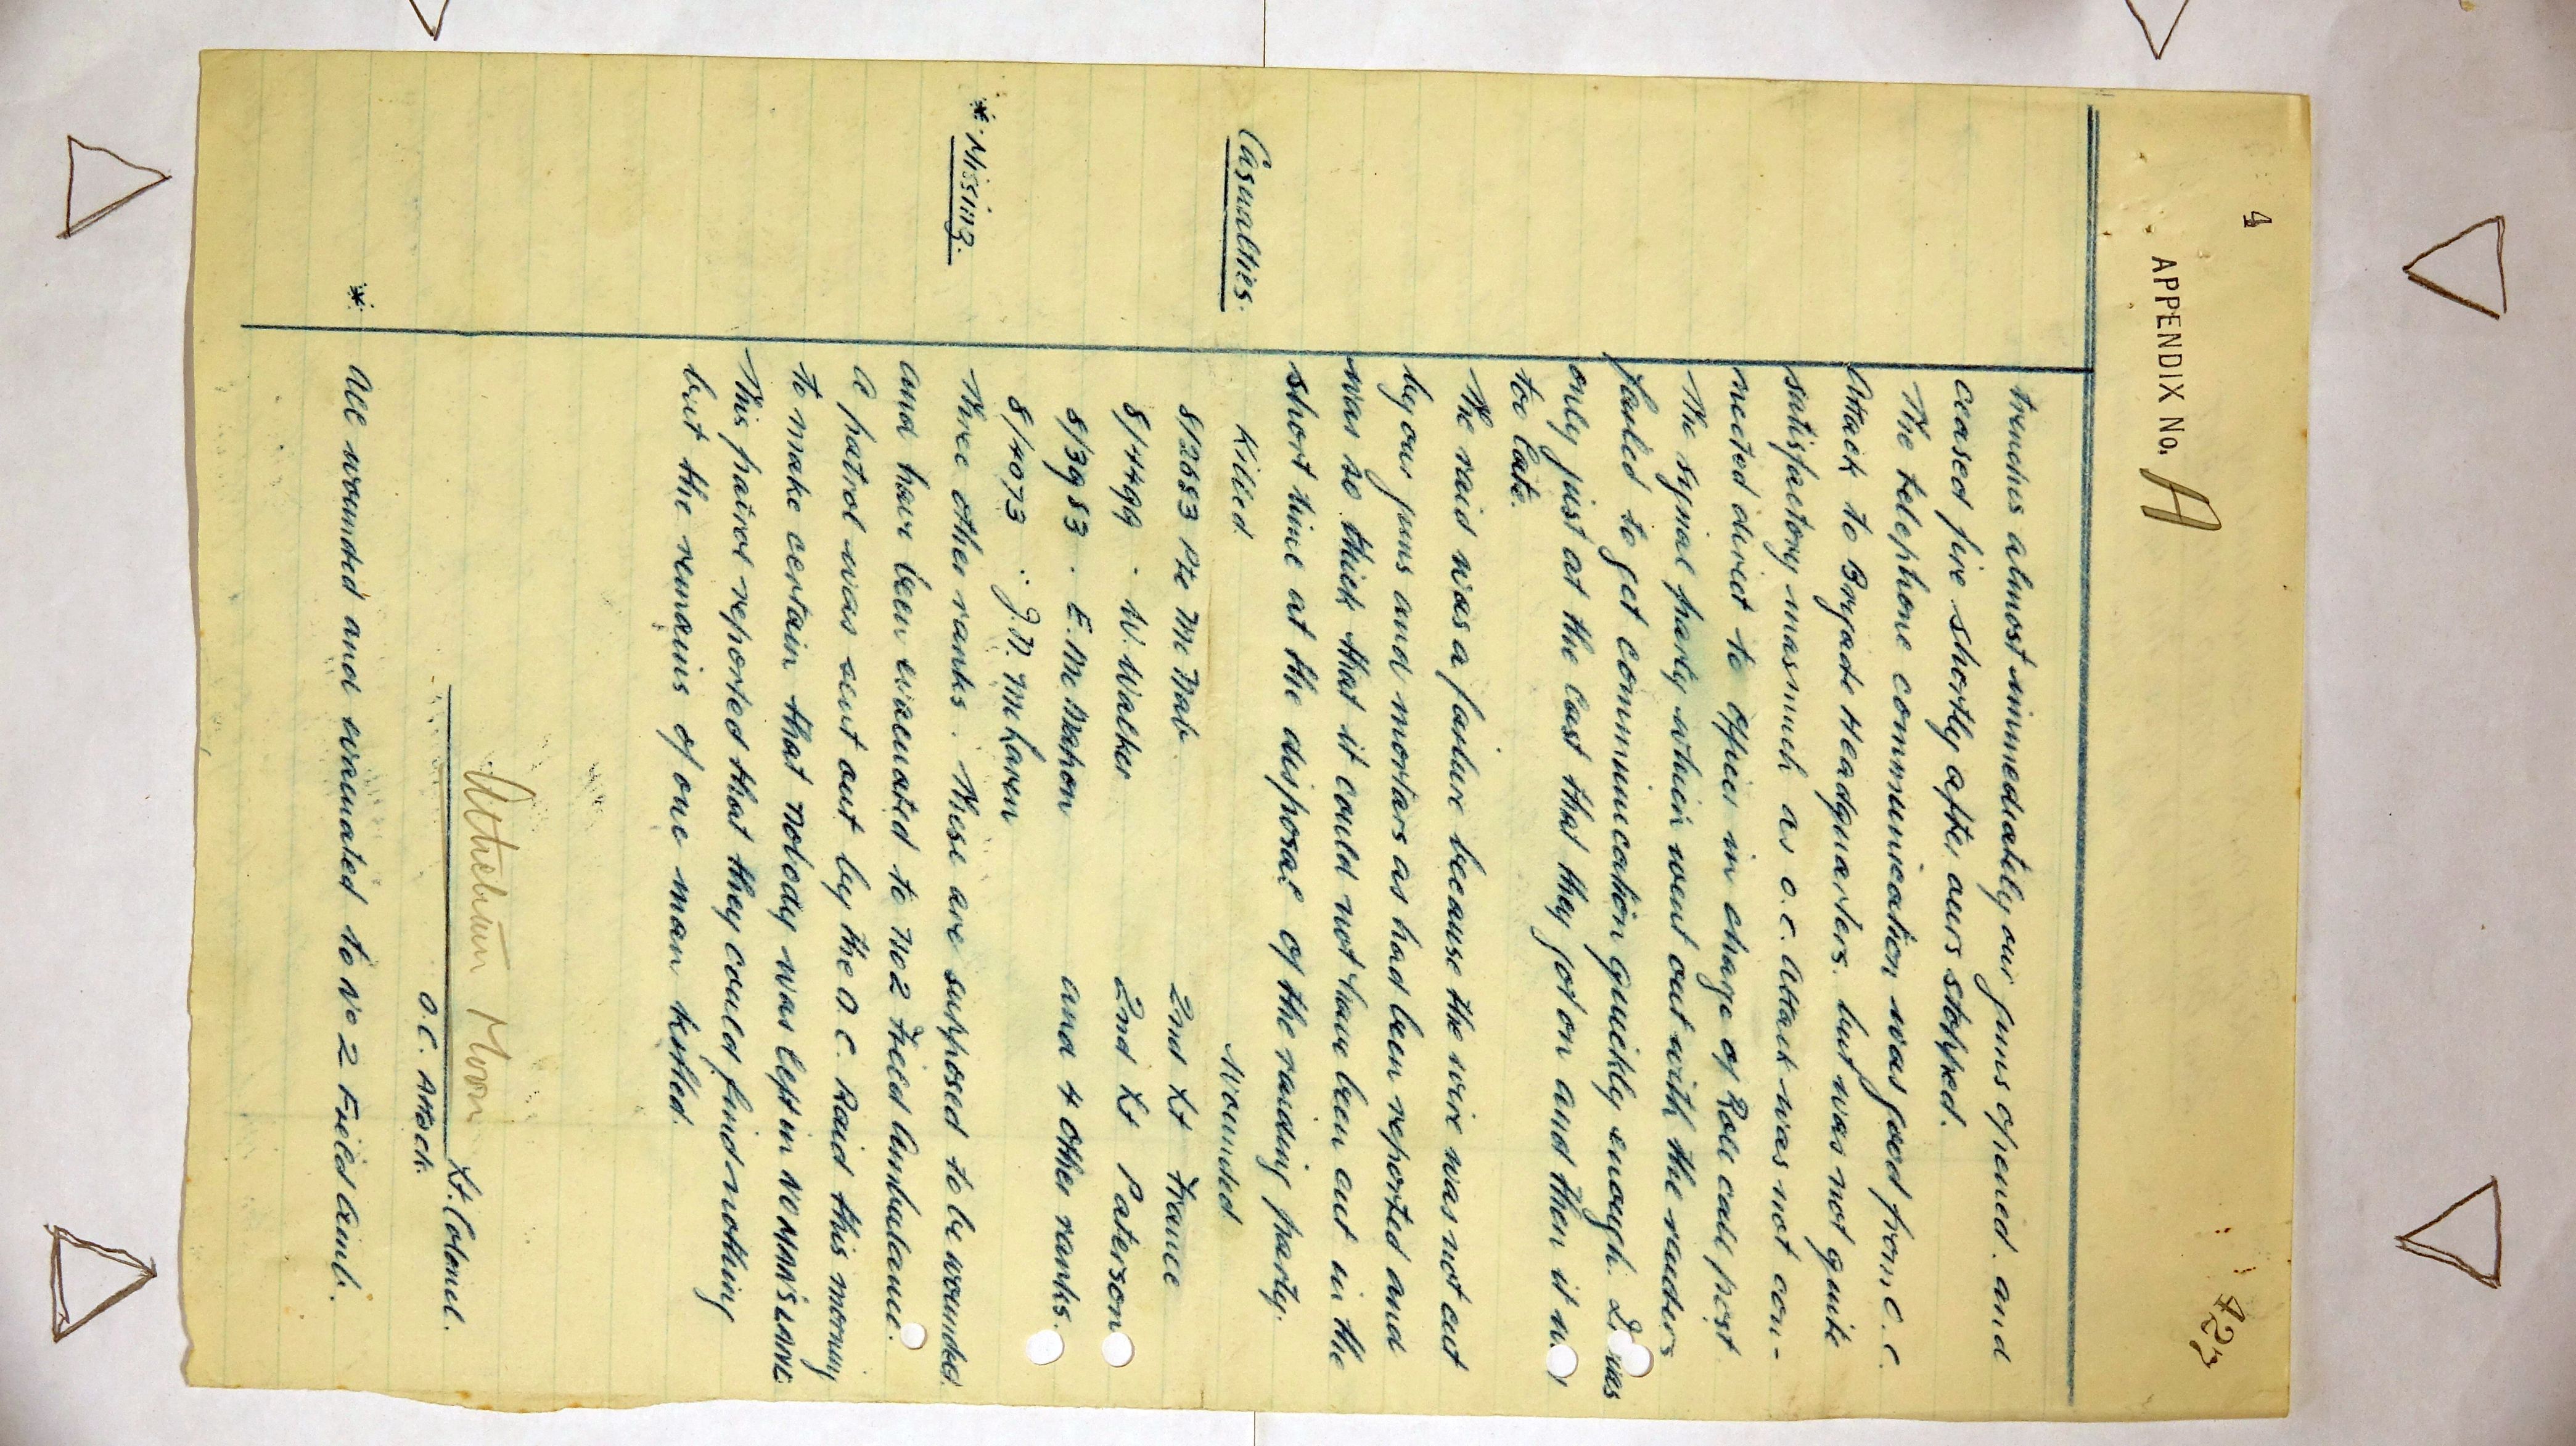 4
APPENDIX No. A
423
trenches almost immediately our guns opened. and
ceased fire shortly after ours stopped.
The telephone communication was good from C.C.
Attack to Brigade Headquarters. but was not quite
satisfactory inasmuch as O.C. Attack was not con-
nected direct to officer in charge of Roll call post.
The signal party which went out with the raiders
failed to get communication quickly enough. was
only just at the last that they got on and then it
too late.
The raid was a failure because the wire was not cut
by our guns and mortars as had been reported and
was so thick that it could not have been cut in the
short time at the disposal of the raiding party.
Casualties.
Killed. Wounded
8/2653 Pte McNab 2nd Lt France
8/4499 . W. Walker 2nd Lt Paterson
8/3983 . E. McMahon and 4 other ranks.
8/4073 .. J.N. McLaren
* Missing. Three other ranks. These are supposed to be wounded
and have been evacuated to No 2 Field Ambulance.
A patrol was sent out by the O.C. Raid this morning
to make certain that nobody was left in NO MAN'S LAND.
This patrol reported that they could find nothing
but the remains of one man killed.
Moon
Lt. Colonel.
O.C. Attack.
* All wounded and evacuated to No 2 Field Amb.